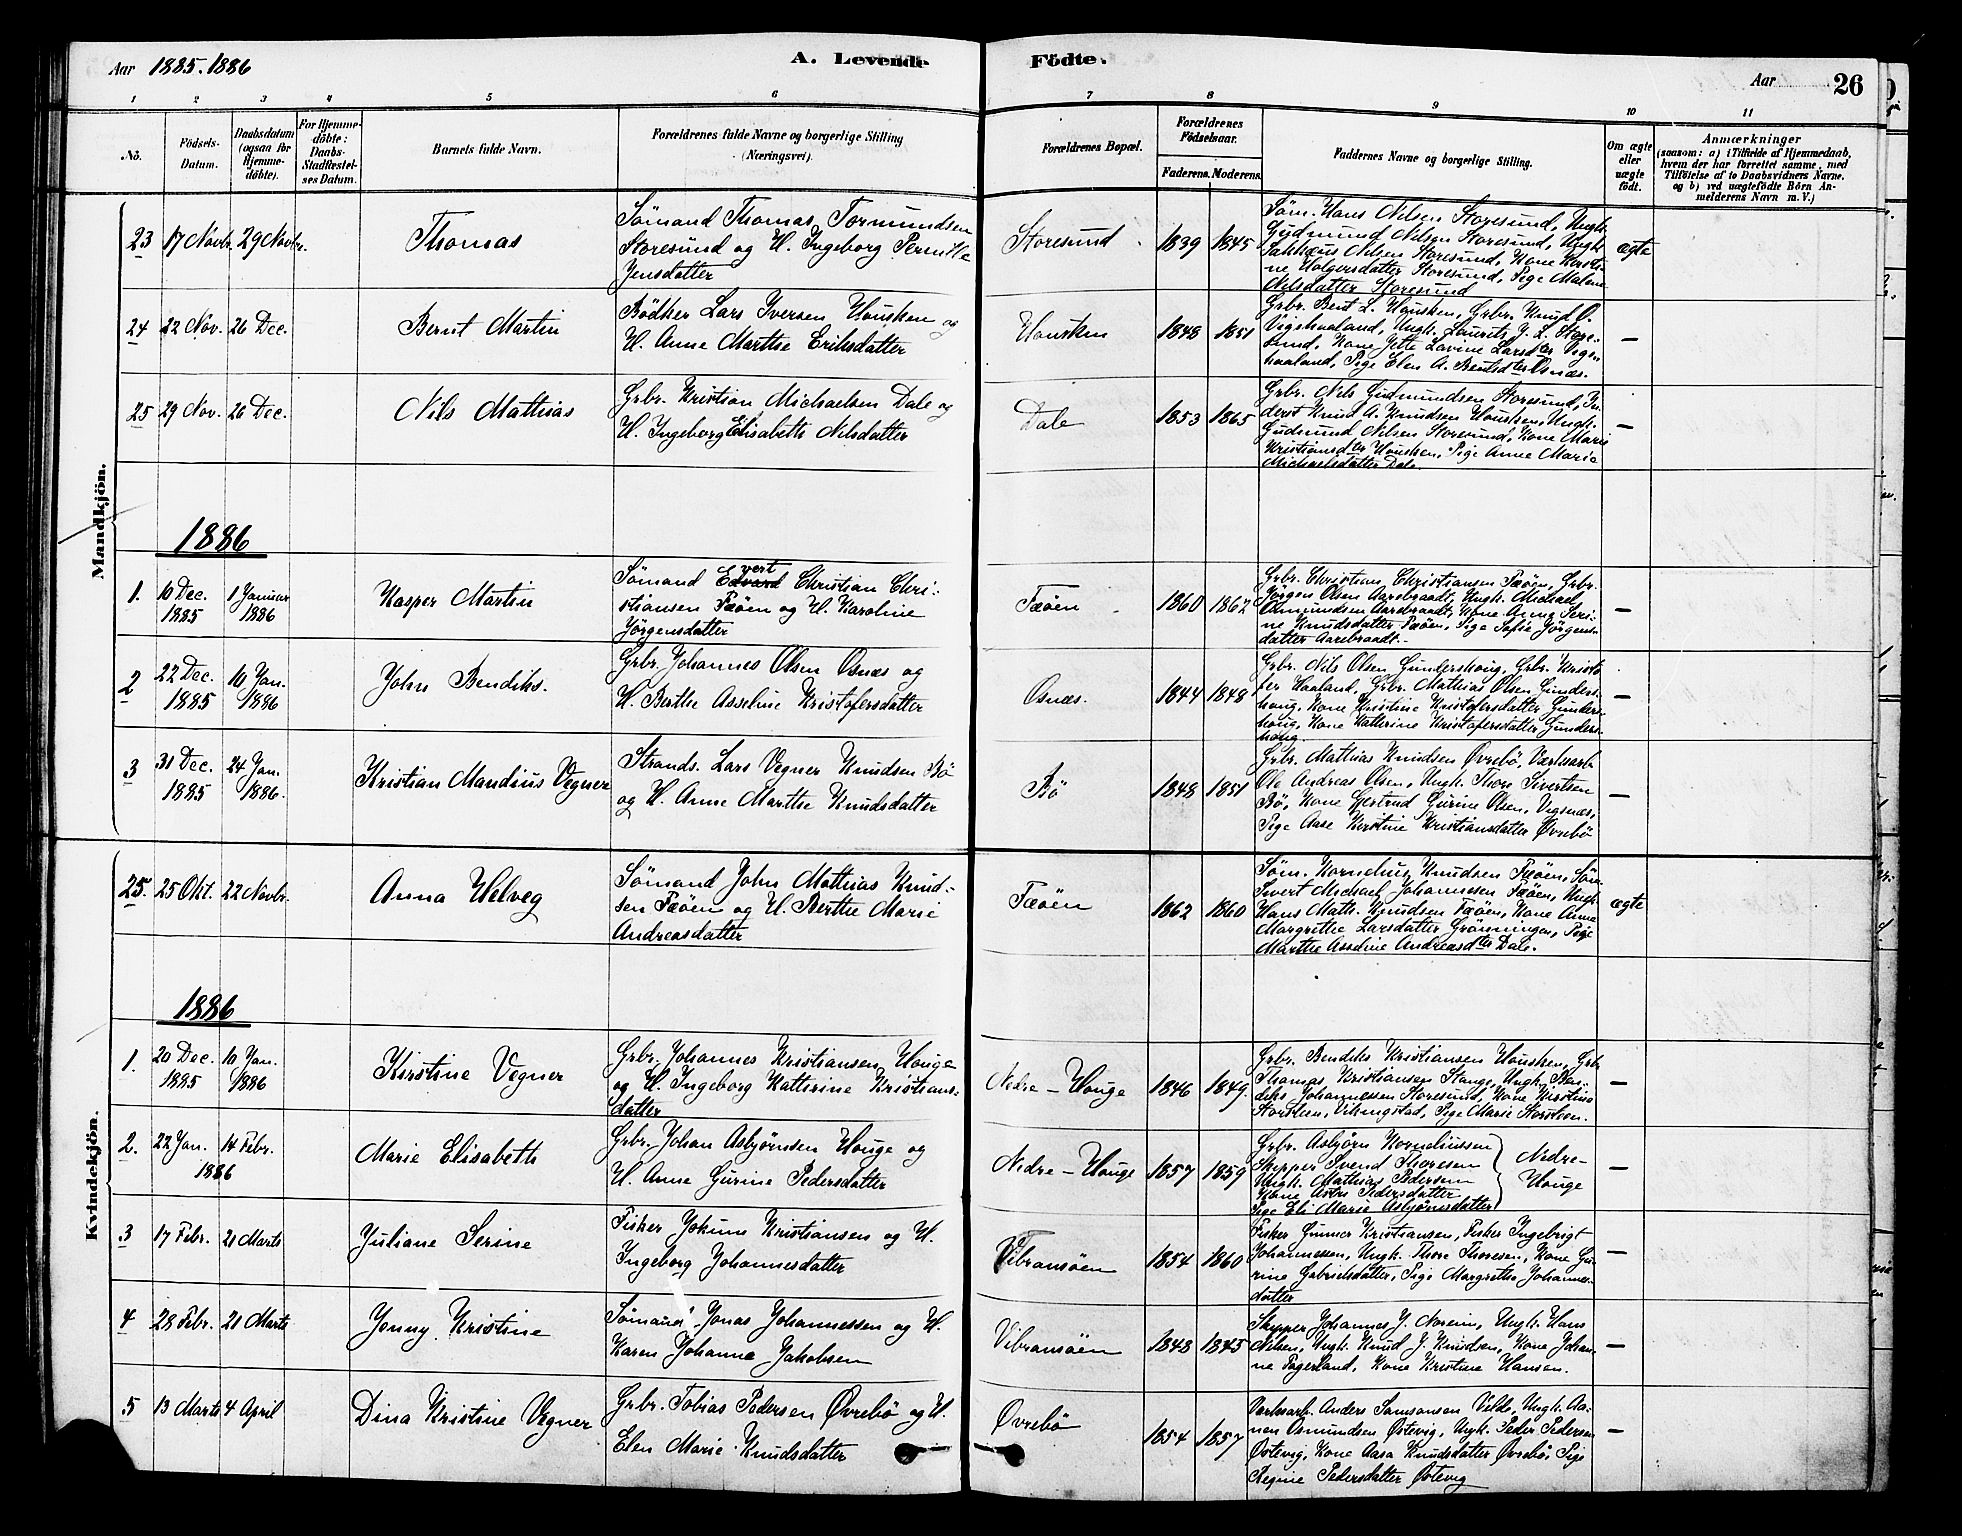 Aar 1885.1886
A. Levende Födte.
Aar 26
1 2 3 4 5 6 7 8 9 10 11
No.
Födsels-Datum.
Daabsdatum (ogsaa for Hjemmedöbte).
For Hjemmedöbte: Daabs-Stadfæstelses Datum.
Barnets fulde Navn.
Forældrenes fulde Navne og borgerlige Stilling (Næringsvei).
Forældrenes Bopæl.
Forældrenes Födselsaar.
Faderens. Moderens.
Faddernes Navne og borgerlige Stilling.
Om ægte eller uægte födt.
Anmærkninger
(saasom: a) i Tilfælde af Hjemmedaab, hvem der har forrettet samme, med Tilföielse af to Daabsvidners Navne, og b) ved uægtefödte Börn Anmelderens Navn m. V.)
Mandkjön.
23 17 Novbr. 29 Novbr. Thomas
Sömand Thomas Tormundsen
Storesund og H. Ingeborg Pernille
Jensdatter
Storesund 1839 1845
Söm. Hans Nilsen Storesund, Ungk.
Gudmund Nilsen Storesund, Ungk.
Sakkæus Nilsen Storesund, Kone Kirsti-
ne Holgersdatter Storesund, Pige Malene
Nilsdatter Storesund
ægte
24 22 Nov. 26 Dec. Bernt Martin
Bödker Lars Iversen Housken og
H. Anne Marthe Eriksdatter
Housken 1848 1851
Grbr. Bent L. Housken, Grbr. Knud O.
Vigehaaland, Ungk. Laurits J. L. Store-
sund, Kone Jette Lavine Larsdter Vige-
haaland, Pige Elen A. Bentsdter Osnæs.
—
25 29 Nov. 26 Dec. Nils Mathias
Grbr. Kristian Michaelsen Dale og
H. Ingeborg Elisabeth Nilsdatter
Dale 1853 1865
Grbr. Nils Gudmundsen Storesund, In-
derst Knud A. Knudsen Housken, Ungk.
Gudmund Nilsen Storesund, Kone Marie
Kristiansdter Housken, Pige Anne Marie
Michaelsdatter Dale
—
1886
1. 10 Dec. 1885 1 Januar 1886 Kasper Martin
Sömand Edvard vert Christian Chri-
stiansen Fæöen og H. Karoline
Jörgensdatter
Fæöen 1860 1862
Grbr. Christian Christiansen Fæöen, Grbr.
Jörgen Olsen Aarebraadt, Ungk. Michael
Osmundsen Aarebraadt, Kone Anna Seri-
ne Knudsdatter Fæöen, Pige Sofie Jörgens-
datter Aarebraadt.
—
2 22 Dec. 1885 10 Jan. 1886 John Bendiks.
Grbr. Johannes Olsen Osnæs og
H. Berthe Asseline Kristofersdatter
Osnæs. 1844 1848
Grbr. Nils Olsen Gunderskoug, Grbr. Kristo-
fer Haaland, Grbr. Mathias Olsen Gunders-
houg, Kone Kristine Kristofersdatter Gunders-
houg, Kone Katherine Kristofersdatter Gunders-
houg.
—
3 31 Dec. 1885 24 Jan. 1886. Kristian Mandius Vegner
Strands. Lars Vegner Knudsen Bö
og H. Anne Marthe Knudsdatter
Bö 1848 1851
Grbr. Mathias Knudsen Øvrebö, Værksarb.
Ole Andreas Olsen, Ungk. Thore Sivertsen
Bö, Kone Gjertrud Gurine Olsen, Vigsnæs,
Pige Aase Kirstine Kristiansdatter Øvrebö
—
Kvindekjön.
25. 25 Okt. 22 Novbr. Anna Helveg
Sömand John Mathias Knud-
sen Fæöen og H. Berthe Marie
Andreasdatter
Fæöen 1862 1860
Söm. Kornelius Knudsen Fæöen, Söm.
Sivert Michael Johannesen Fæöen, Ungk.
Hans Math. Knudsen Fæöen, Kone Anne
Margrethe Larsdatter Grönningen, Pige
Marthe Asseline Andreasdter Dale.
ægte
1886
1. 20 Dec. 1885 10 Jan. 1886 Kirstine Vegner
Grbr. Johannes Kristiansen Houge
og H. Ingeborg Kathrine Kristians-
datter
Nedre-Houge 1846 1849.
Grbr. Bendiks Kristiansen Housken, Grbr.
Thomas Kristiansen Stange, Ungk. Ben-
diks Johannessen Storesund, Kone Kristine
Storsteen, Vikingstad, Pige Marie Storsteen.
—
2. 22 Jan. 14 Febr. 1886 Marie Elisabeth
Grbr. Johan Asbjörnsen Houge og
H. Anne Gurine Pedersdatter
Nedre-Houge 1857 1859
Grbr. Asbjörn Korneliussen
Skipper Svend Thoresen
Ungk. Mathias Pedersen
Kone Astri Pedersdatter
Pige Eli Marie Asbjörnsdatter
Nedre-
Houge
—
3 17 Febr. 21 Marts Juliane Serine
Fisker Jokum Kristiansen og H.
Ingeborg Johannesdatter
Vibransöen 1854 1860
Fisker Gunner Kristiansen, Fisker Ingebrigt
Johannessen, Ungk. Thore Thoresen, Kone Gu-
rine Gabrielsdatter, Pige Margrethe Johannes-
datter
—
4 28 Febr. 21 Marts Jenny Kristine
Sömand Jonas Johannessen og H.
Karen Johanne Jakobsen
Vibransöen 1848 1845
Skipper Johannes J. Noreim, Ungk. Hans
Nilsen, Ungk. Knud J. Knudsen, Kone Johan-
ne Fagerland, Kone Kristine Hansen.
—
5 13 Marts 4 April Dina Kristine Vegner
Grbr. Tobias Pedersen Øvrebö og H.
Elen Marie Knudsdatter
Øvrebö 1854 1857
Værksarb. Anders Samsonsen Velde, Ungk. Aa-
nen Osmundsen Østevig, Ungk. Peder Pedersen
Østevig, Kone Aasa Knudsdatter Øvrebö, Pige
Regine Pedersdatter Østevig
—